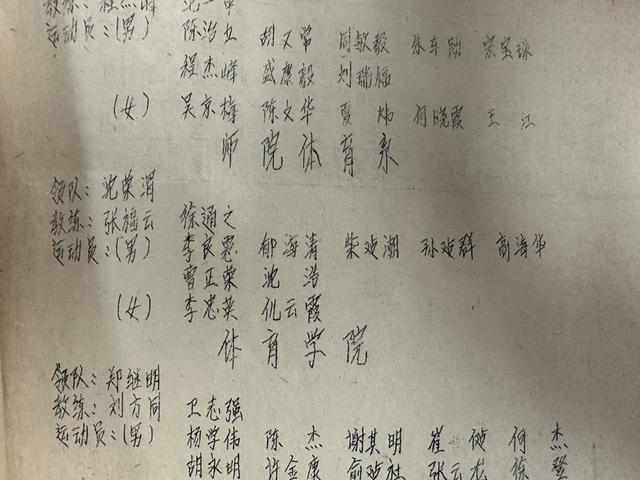 教练：程杰峰 沈一
运动员：(男) 陈治立 胡又常 周敏毅 张车勋 宋宝
程杰峰 盛康毅 刘瑞福
(女) 吴京梅 陈文华 夏炜 何晓霞 王江
师院体育系
领队：沈荣渭
教练：张福云 徐通之
运动员：(男) 李良惠 郁海清 柴 潮 孙 群 高海华
曹正荣 沈浩
(女) 李忠英 仇云霞
体育学院
领队：郑继明
教练：刘方同 卫志强
运动员：(男) 杨学伟 陈杰 谢其明 崔 何杰
胡永明 许金康 俞 张云龙 徐